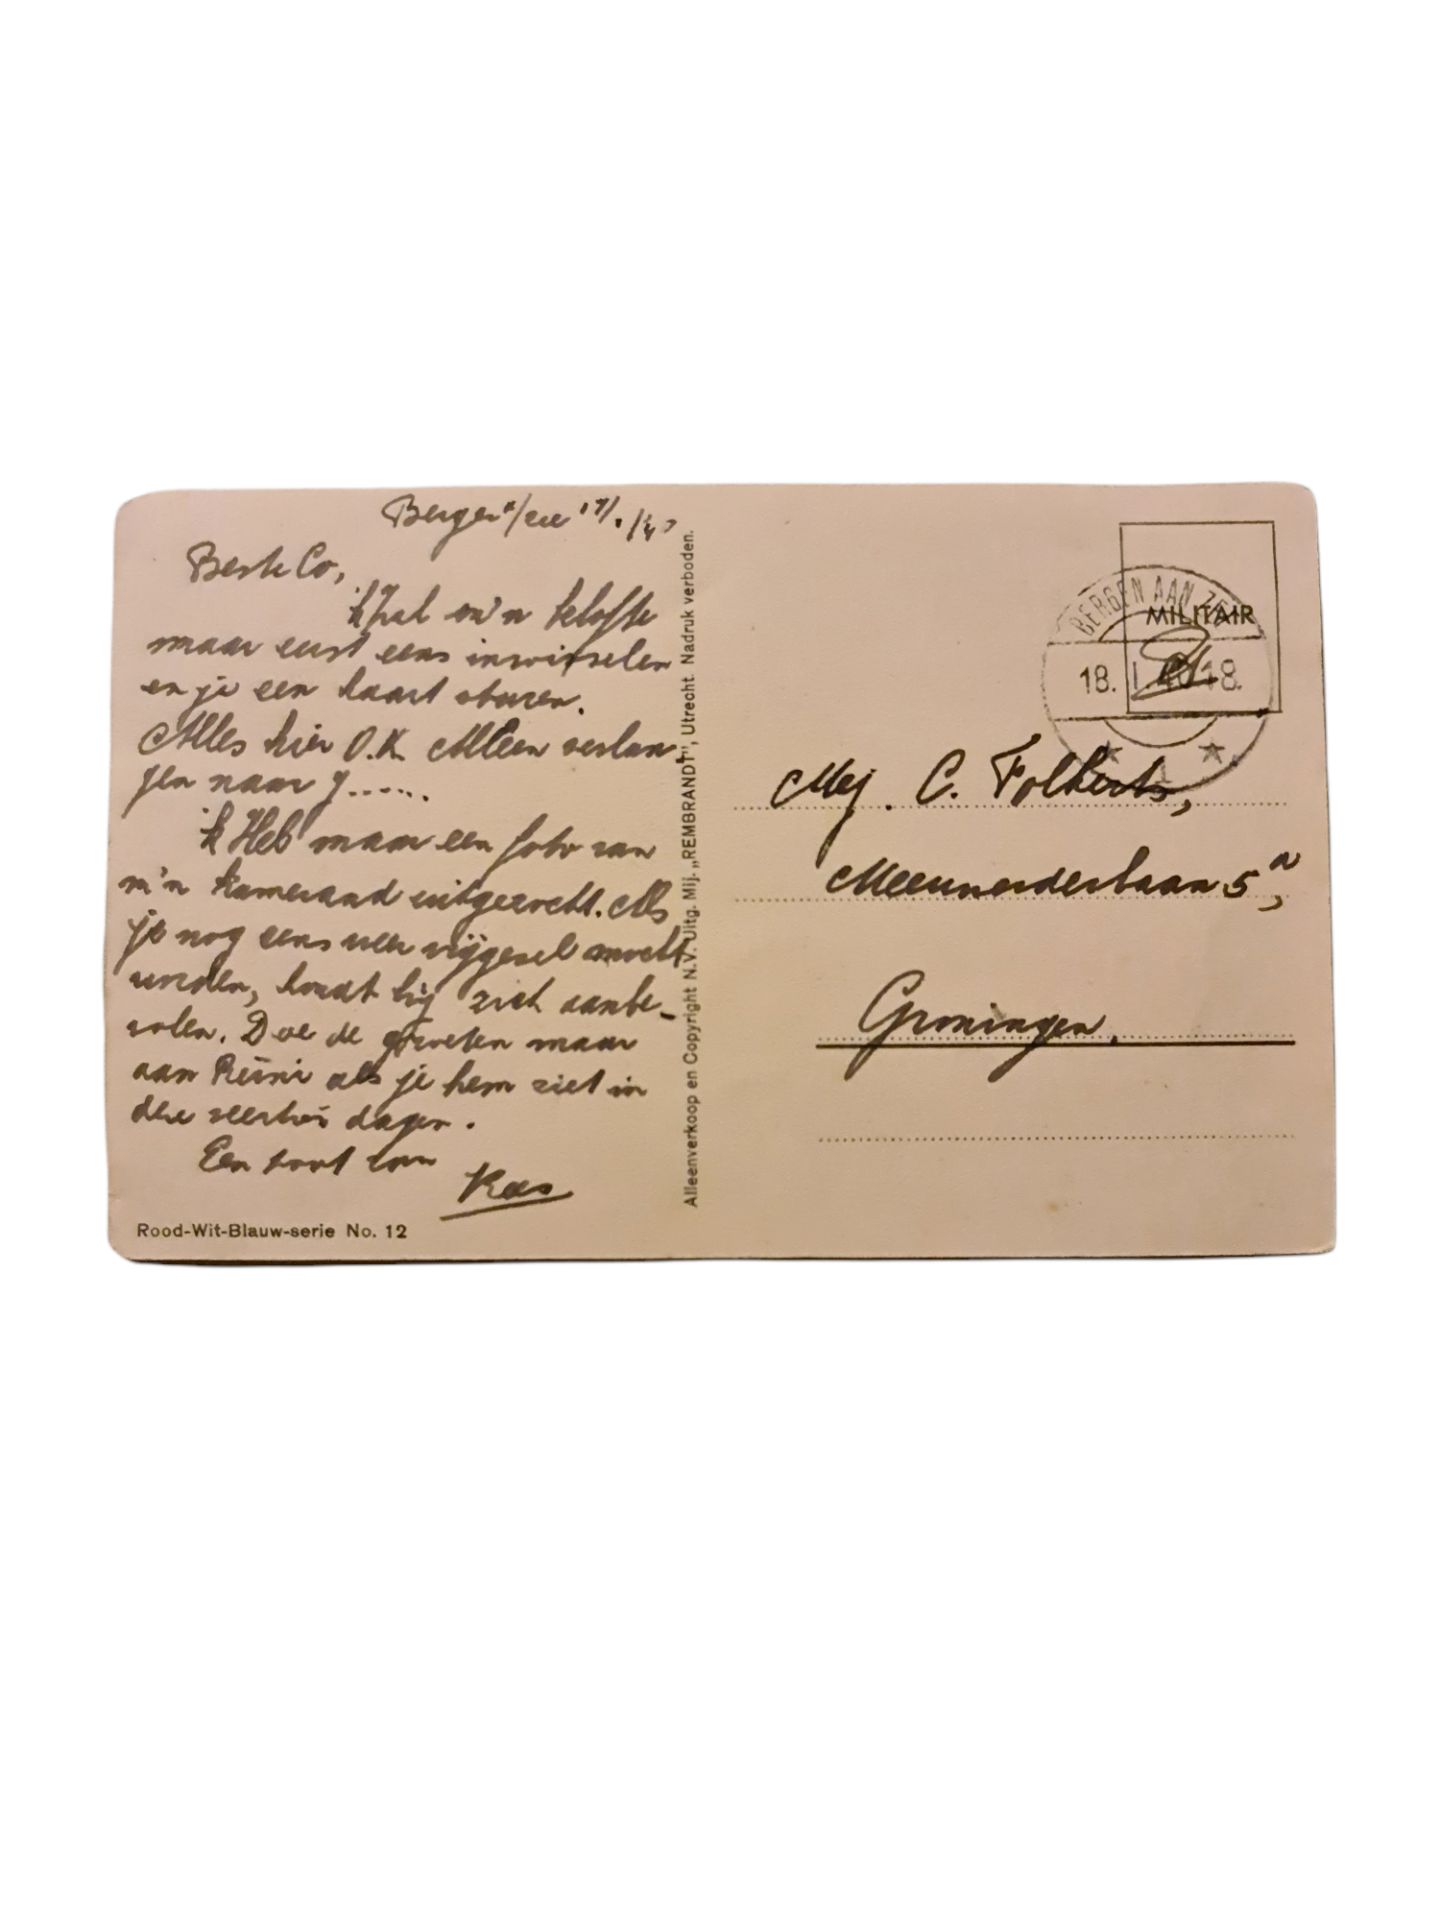 Bergen a/zee 17/1/'40
Beste Co,
'k Zal m'n belofte
maar eerst eens inwisselen
en je een kaart sturen.
Alles hier O.K. Alleen verlan-
gen naar J.....
'k Heb maar een foto van
m'n kameraad uitgezocht. Als
je nog eens weer vrijgezel mocht
worden, houdt hij zich aanbe-
volen. Doe de groeten maar
aan Reini als je hem ziet in
deze dagen.
Een poot van
Kees
Rood-Wit-Blauw-serie No. 12
Alleenverkoop en Copyright N.V. Uitg. Mij. „REMBRANDT", Utrecht. Nadruk verboden.
MILITAIR
BERGEN AAN ZEE
18. I. 40 18.
1
Mej. C. Folkerts,
Meeuwerderbaan 5a,
Groningen.